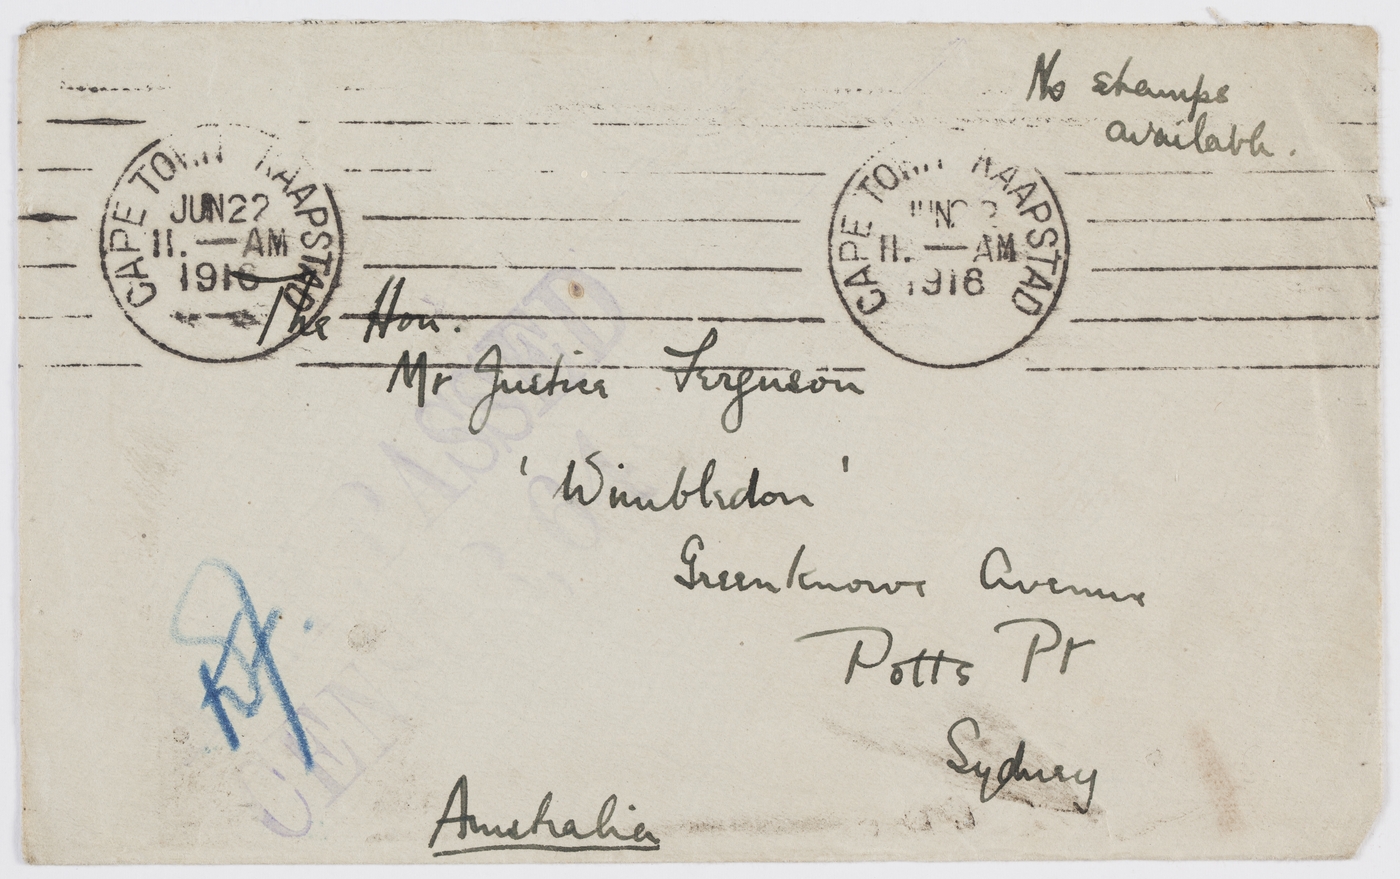 No stamps
available.
CAPE TOWN KAAPSTAD
JUN 22
11. — AM
1916
CAPE TOWN KAAPSTAD
JUN 22
11. — AM
1916
The Hon.
Mr Justice Ferguson
'Wimbledon'
Greenknowe Avenue
Potts Pt
Sydney
Australia
PASSED
CEN